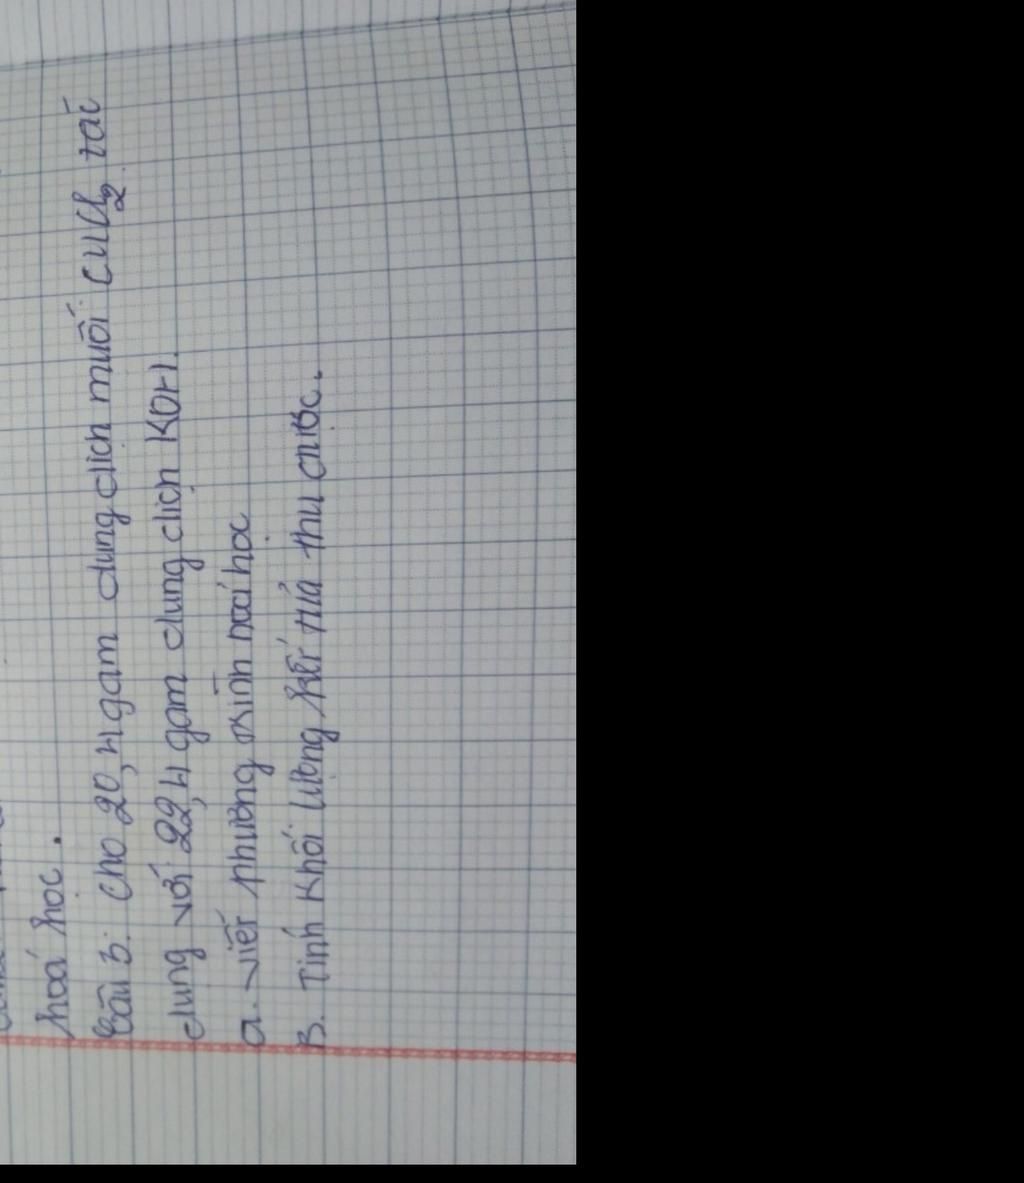 hoá học.
Câu 3: Cho 20,4 gam dung dịch muối CuCl₂ tác
dụng với 22,4 gam dung dịch KOH.
a. Viết phương trình hoá học
B. Tính khối lượng kết tủa thu được.